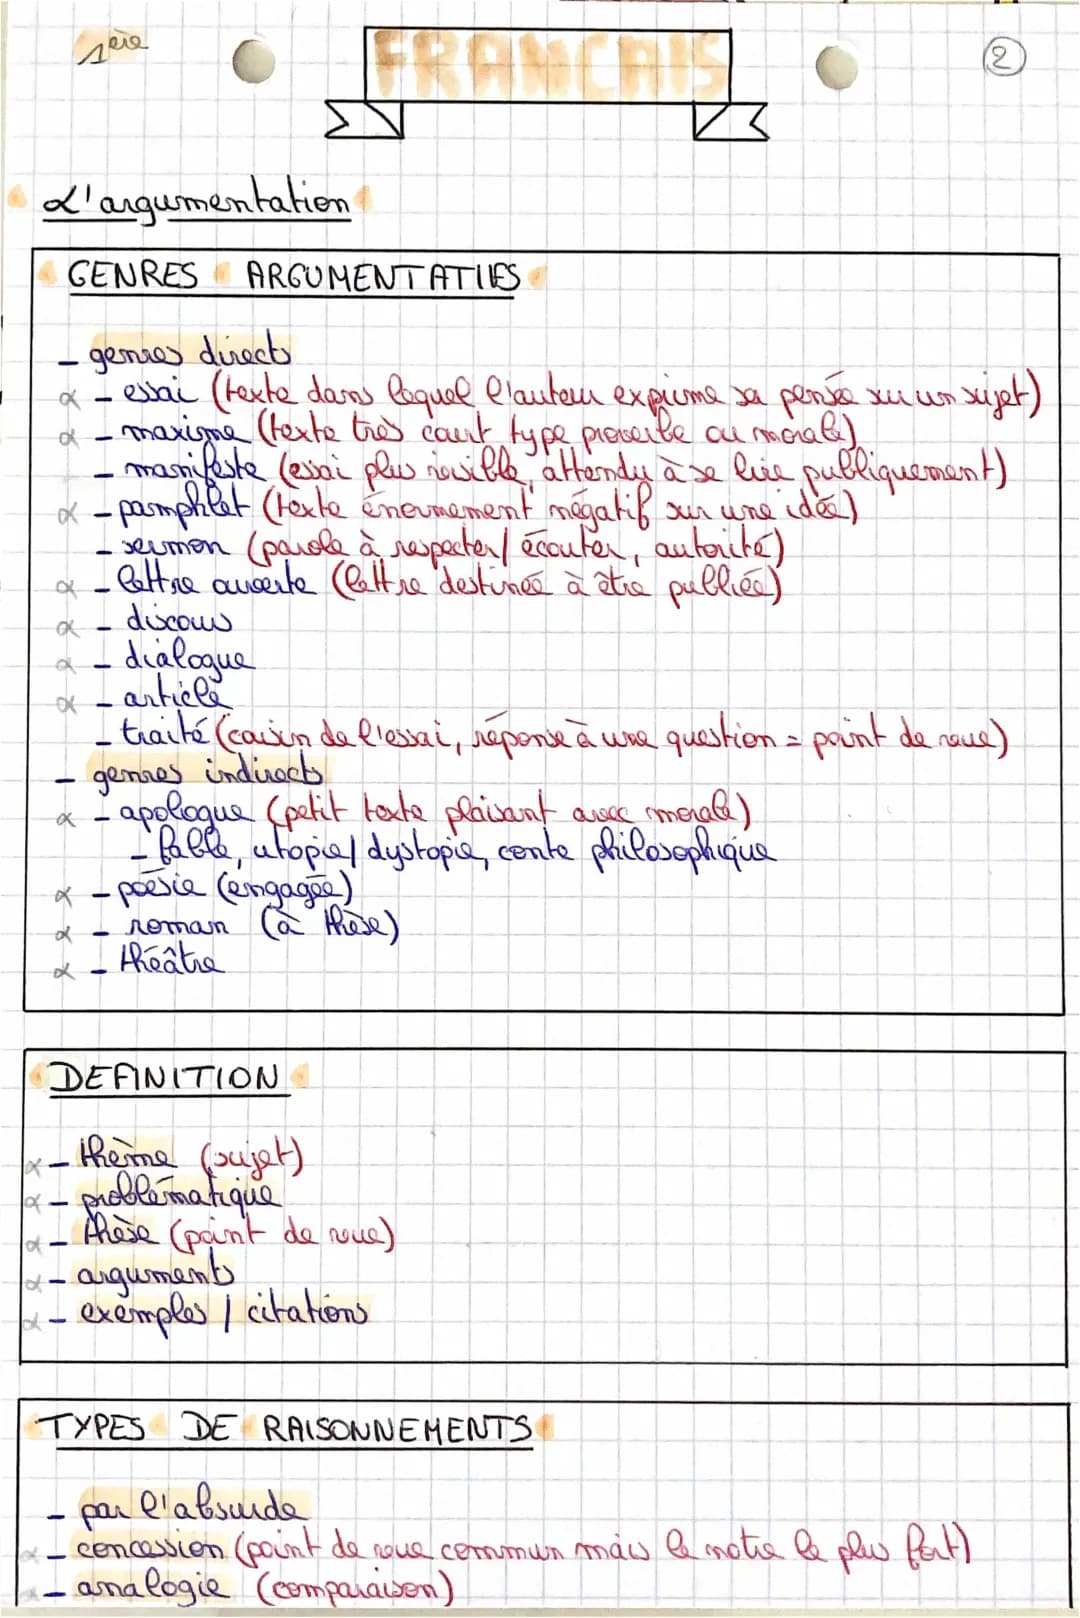 1ère
FRANCAIS
2
L'argumentation
GENRES ARGUMENTATIFS
- genres directs
α - essai (texte dans lequel l'auteur exprime sa pensée sur un sujet)
α - maxime (texte très court type proverbe ou morale)
- manifeste (essai plus risible, attendu à se lire publiquement)
α - pamphlet (texte énormement négatif sur une idée)
- sermon (parole à respecter/ écouter, autorité)
α - lettre ouverte (lettre destinée à être publiée)
α - discours
α - dialogue
α - article
- traité (cousin de l'essai, réponse à une question = point de vue)
- genres indirects
α - apologue (petit texte plaisant avec morale)
- fable, utopie/ dystopie, conte philosophique
α - poésie (engagée)
α - roman (à thèse)
α - théâtre
DEFINITION
α - thème (sujet)
α - problématique
α - thèse (point de vue)
α - arguments
α - exemples / citations
TYPES DE RAISONNEMENTS
- par l'absurde
α - concession (point de vue commun mais le notre le plus fort)
α - analogie (comparaison)